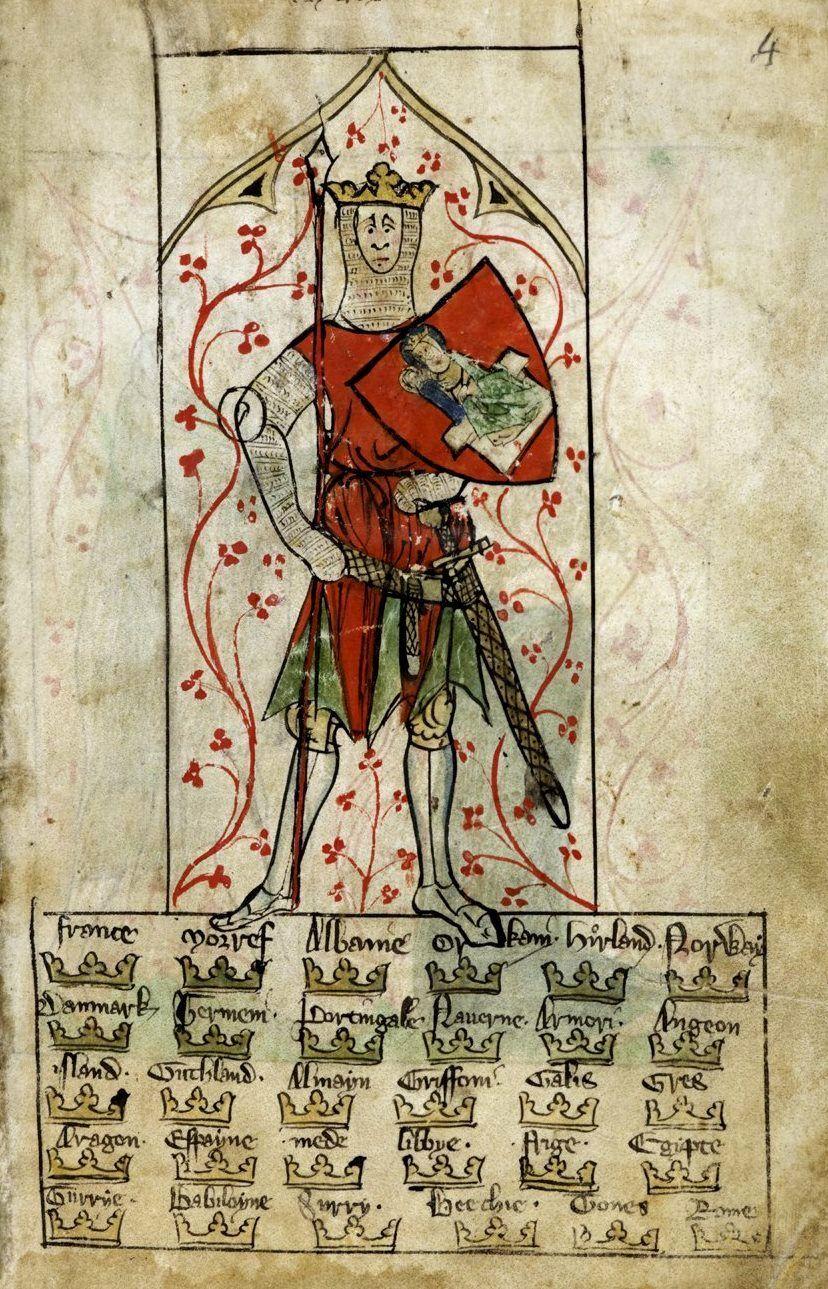 4
france norref Albanie Orkani hirland. Norway
Danmark Germeni. Portingale Nauerne. Armori. Angeon
island. Guthland. Almayn Griffoni. Galis Gres
Aragon. Espayne mede libye. Frige. Egipte
Surrye. Babiloyne Turry. Beechie. Gones Rome